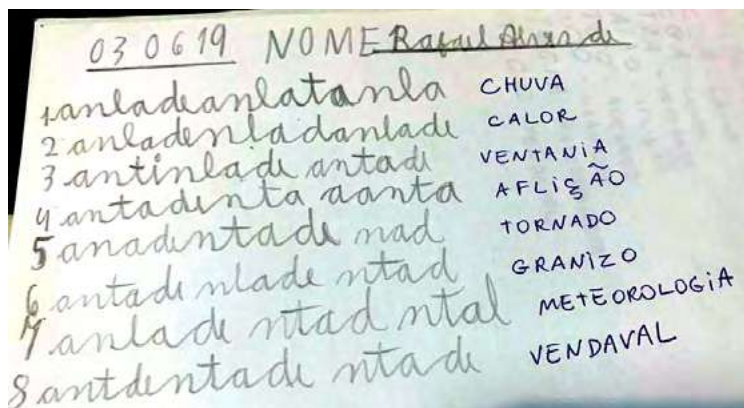 03 06 19 NOME Rafael
1 anladeanlatanla CHUVA
2 anladenladanlade CALOR
3 antinlade antadi VENTANIA
4 antadinta aanta AFLIÇÃO
5 anadintade nad TORNADO
6 antadi nlade ntad GRANIZO
7 anlade ntad ntal METEOROLOGIA
8 antdentade ntade VENDAVAL